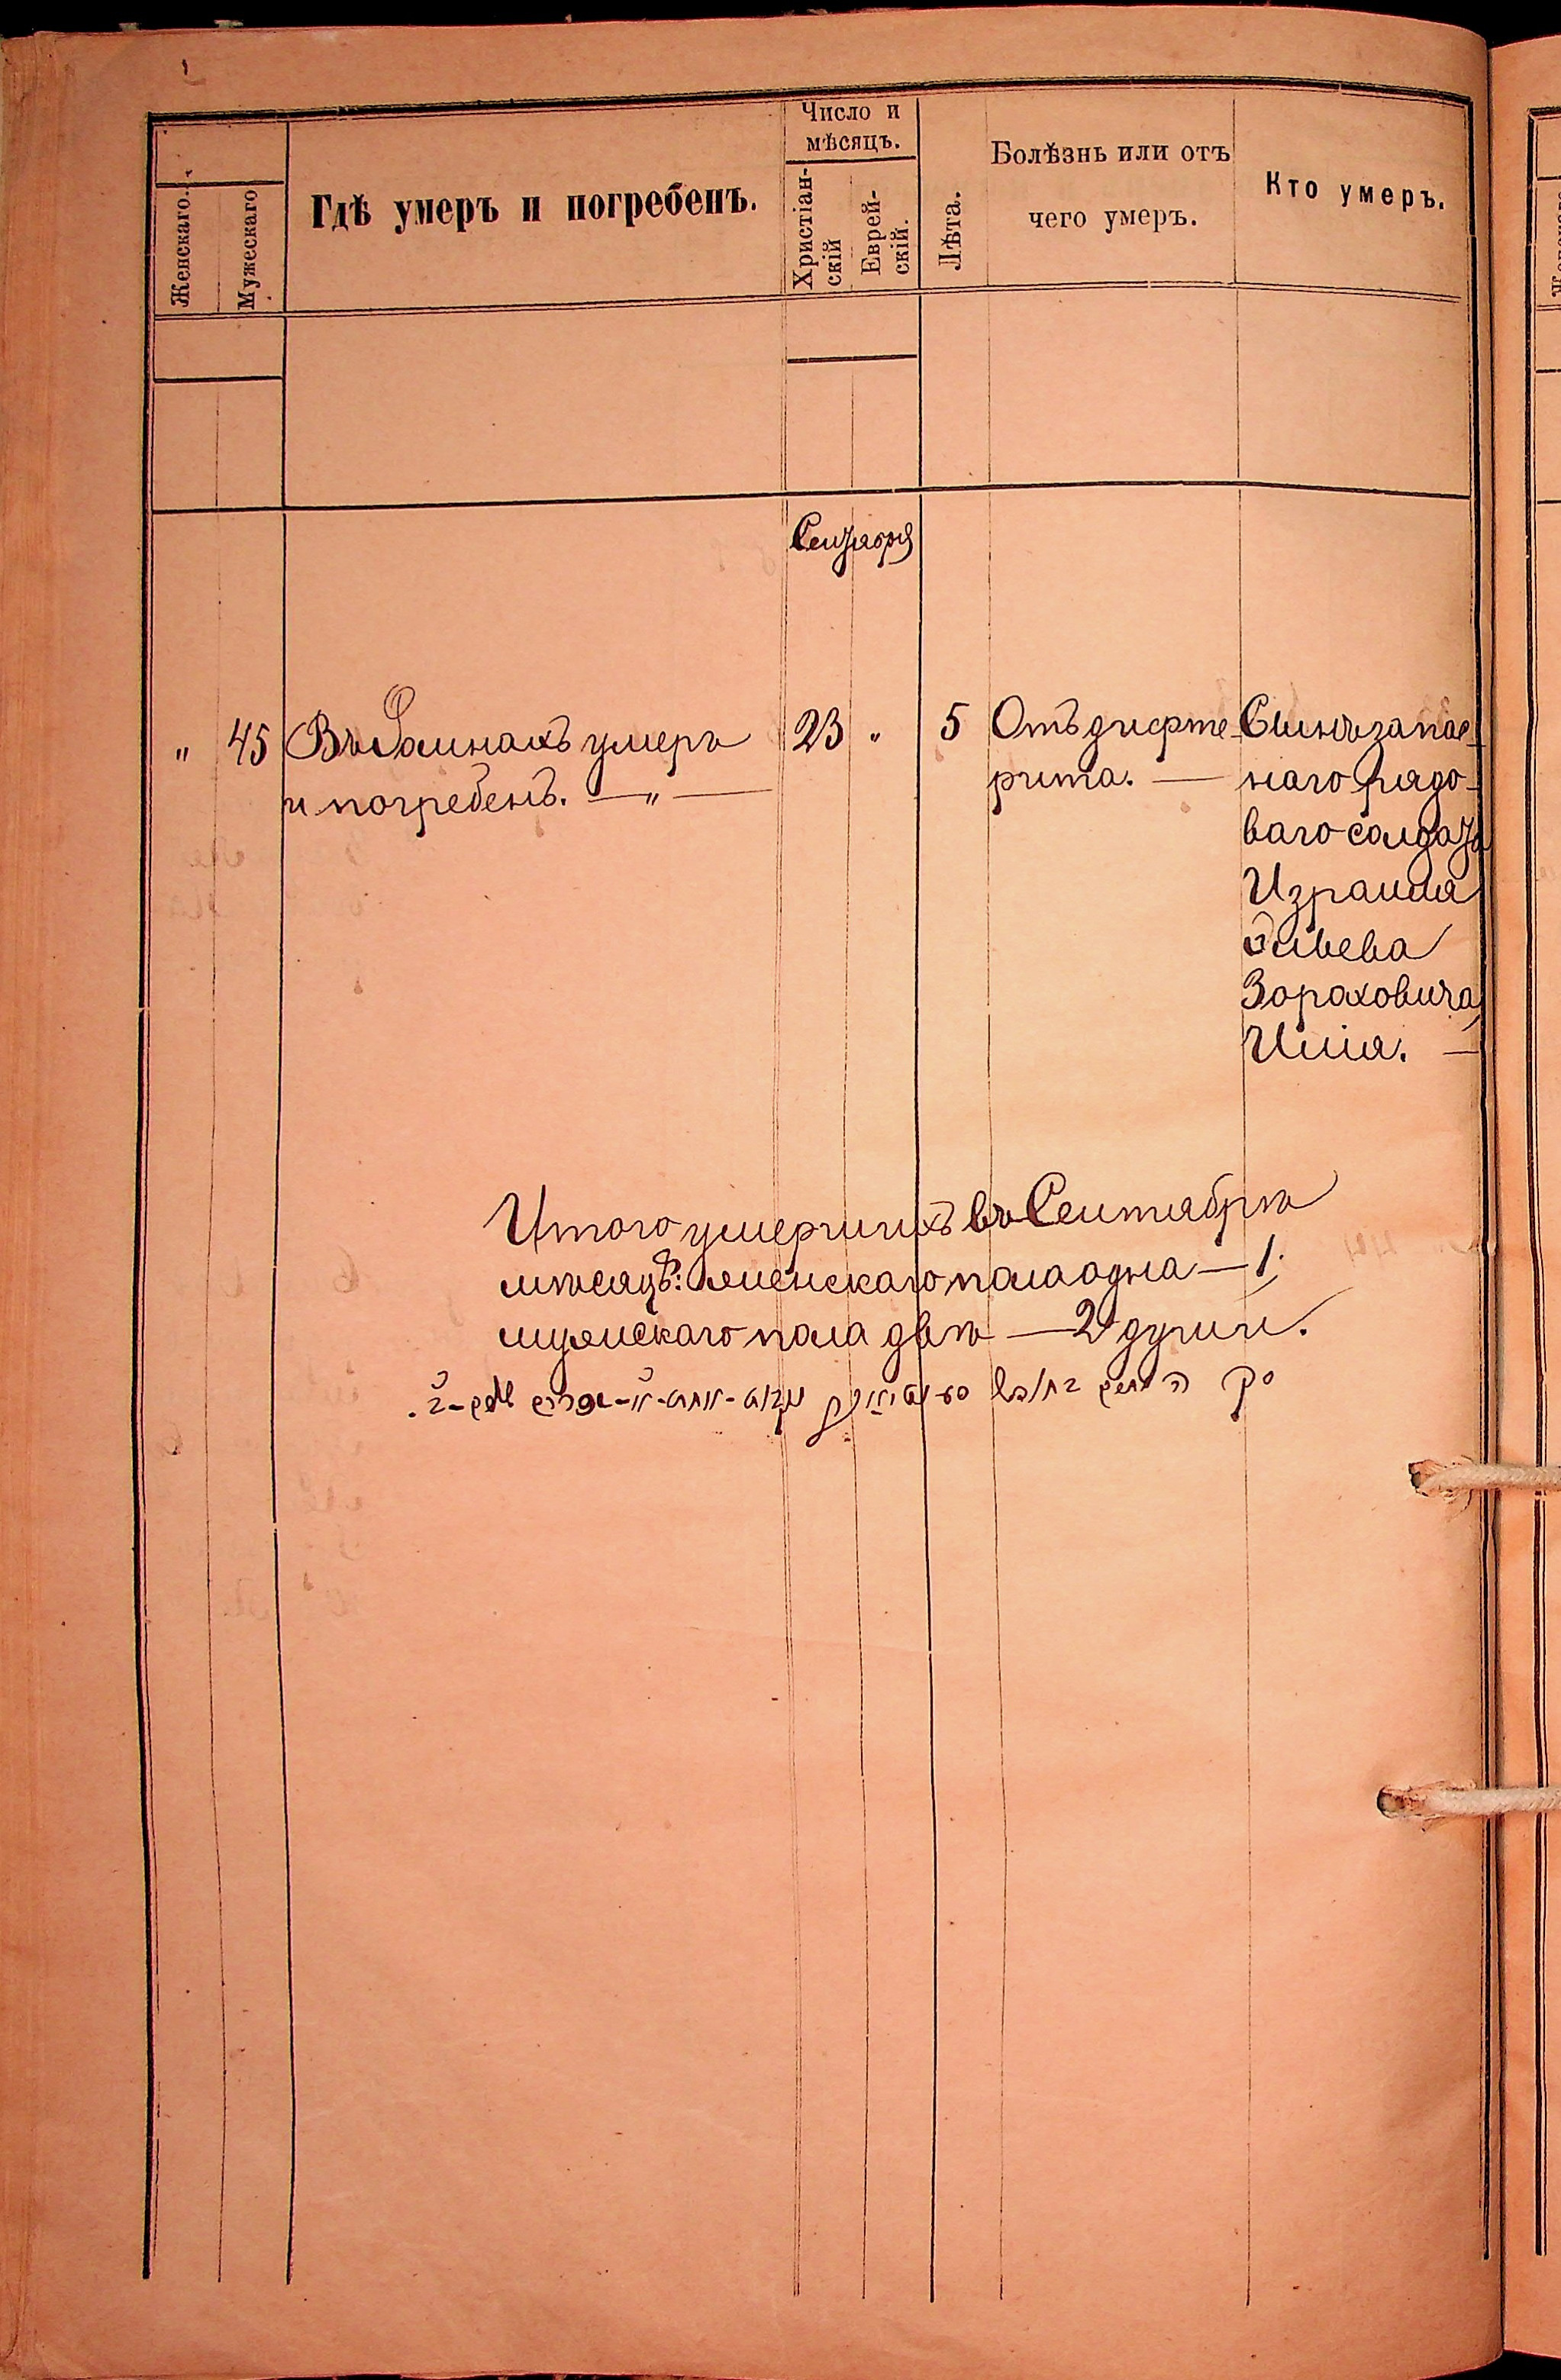 Число и
мѣсяцъ.
Женскаго.
Мужескаго
Гдѣ умеръ и погребенъ.
Христіан-
скій
Еврей-
скій.
Лѣта.
Болѣзнь или отъ
чего умеръ.
Кто умеръ.
Сентября
" 45 Въ умеръ 23 " 5 Отъ дифте- Сынъ запас-
и погребенъ. — " — рита. — наго рядо-
ваго солдата
Израиля
Зораховича
Итого умершихъ въ Сентябрѣ
мѣсяцѣ: женскаго пола одна — 1.
мужескаго пола двѣ — 2 души.